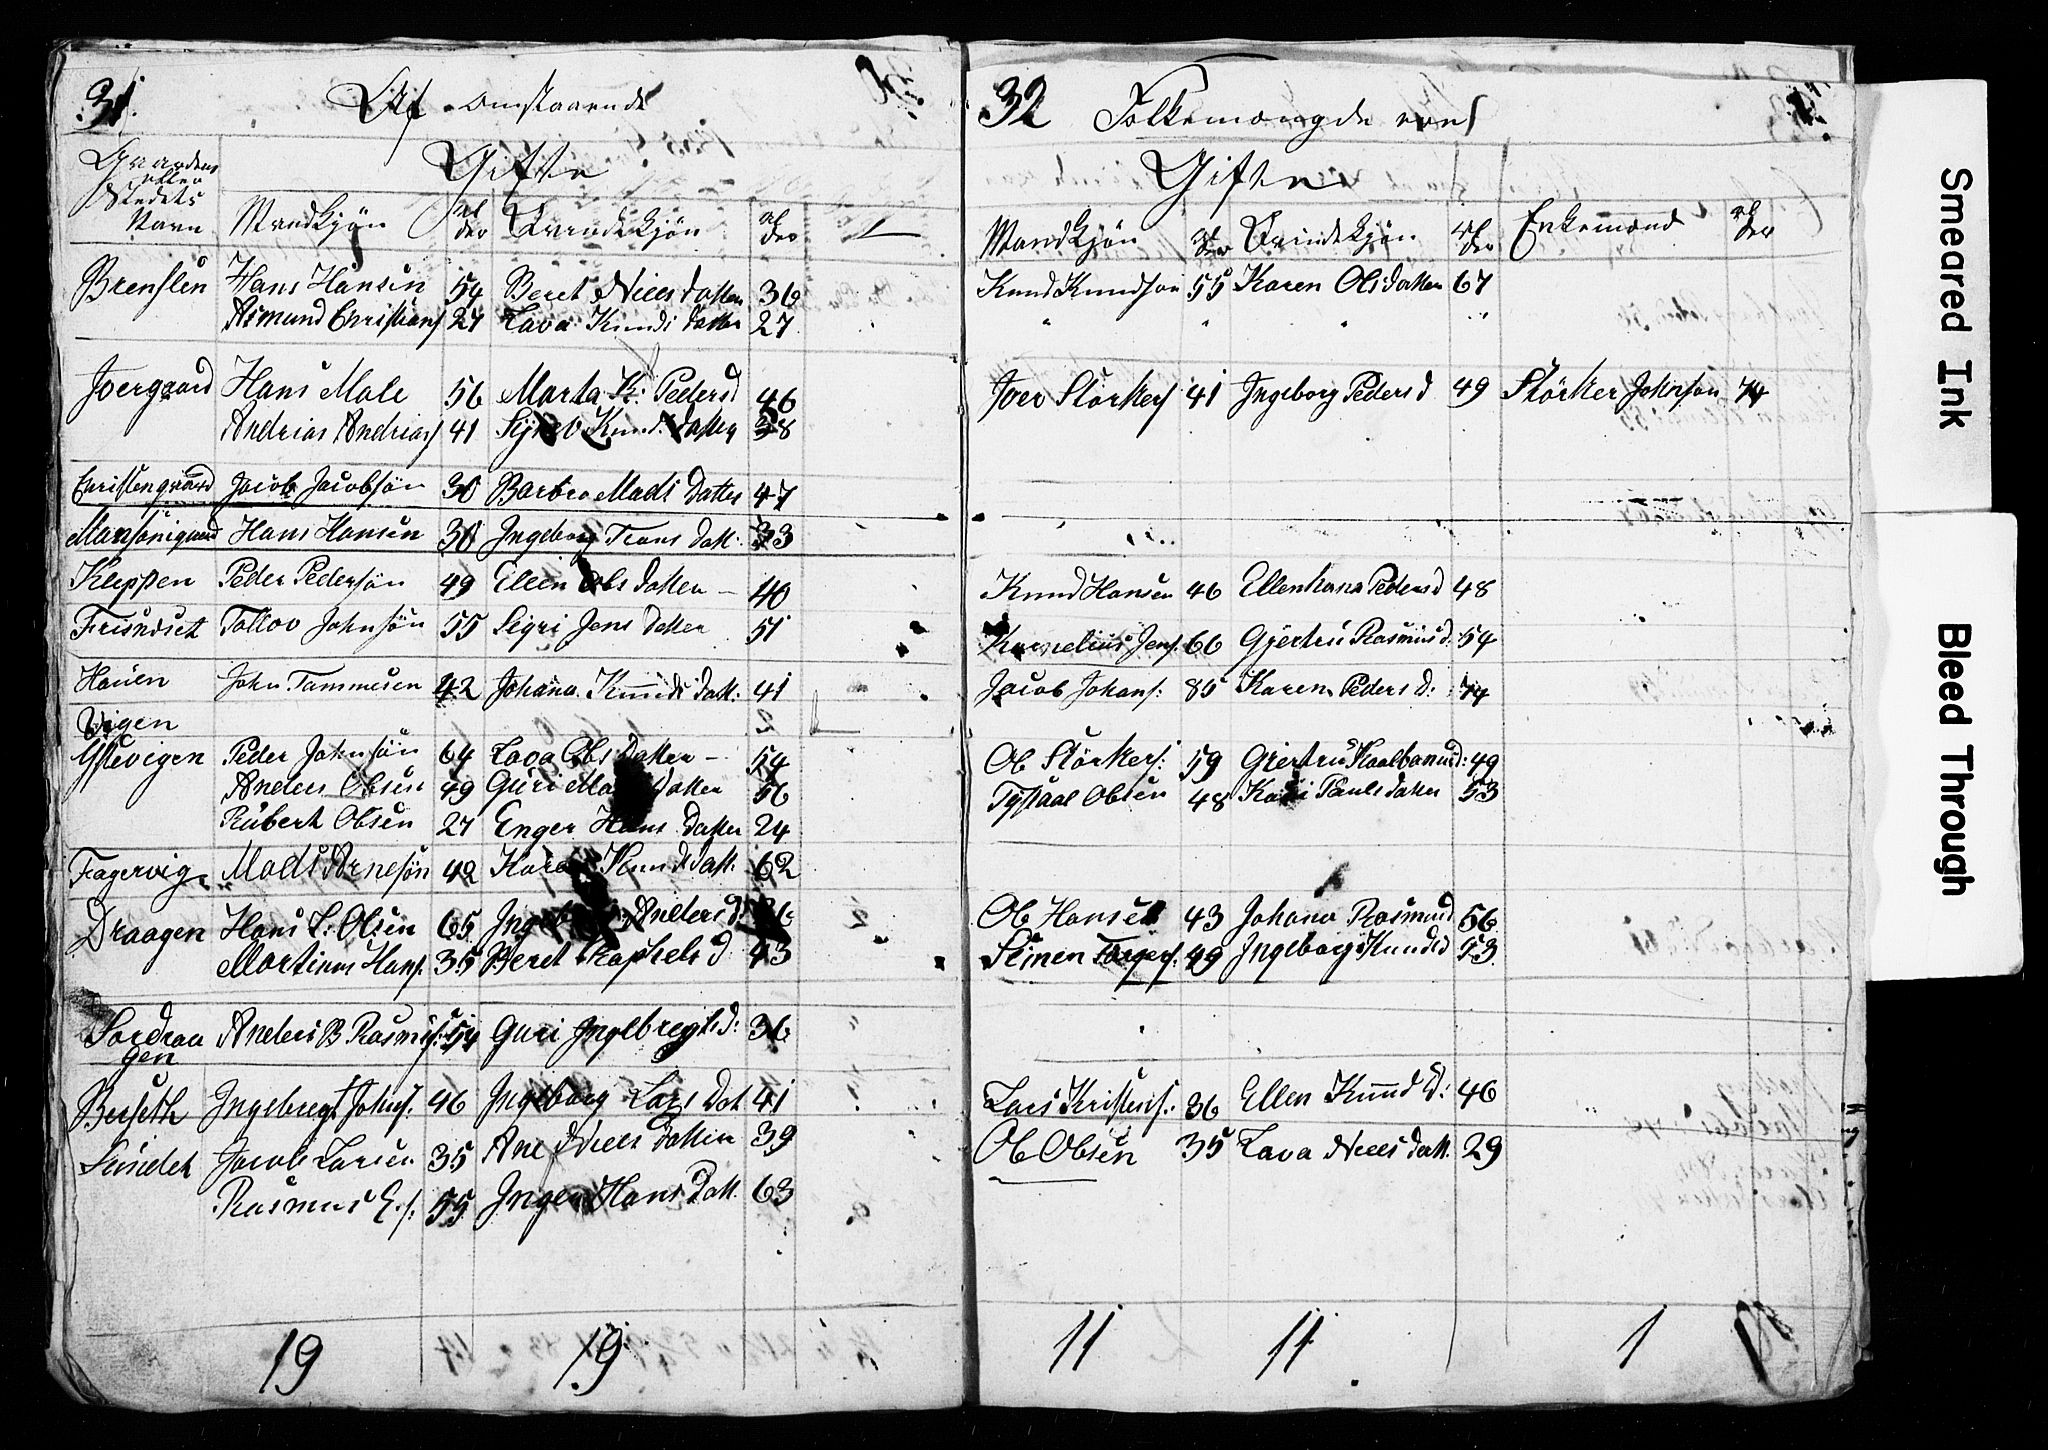 31. Af omstaaende
Gaardens eller Stedets Navn
Gifte
Mandkjön Al der Qvindekjön Al der
Brenslen Hans Hansen 54 Beret Niels datter 36
Asmund Christians 27 Lava Knuds datter 27
Joergaard Hans Male 56 Marta K: Peders d 46
Andrias Andrias 41 Knuds datter 38
Christengaard Jacob Jacobsön 30 Barbro Mads datter 47
Hans Hansen 30 Ingeborg datt: 33
Kleppen Peder Pedersön 49 Elen Ols datter – 40
Frisndset Tollov Johnsön 55 Sigri Jens datter 51
Hauen John Tammesen 42 Johana Knuds datt. 41
Vigen
Ystevigen Peder Johnsön 64 Lava Ols datter – 54
Anders Olsen 49 Guri datter 56
Rubert Olsen 27 Enger Hans datter 24
Fagervig Mads Arnesön 42 Knuds datt. 62
Draagen Hans L: Olsen 65 Anders d:
Martinus Hans. 35 Beret Raphels d: 43
Sordraagen Anders B Rasmus: 54 Guri Ingebregts d: 36
Berseth Ingebregt Johns. 46 Ingeborg Lars Dat 41
Sundet Jacob Larsen 35 Ane Niels datter 39
Rasmus E.s: 55 Inger Hans Datt. 63
19 19
32 Folkemængde
Gifte
Mandkjön Al der Qvindekjön Al der Enkemænd Al der
Knud Knudson 55 Karen Ols datter 67
Joer Störkers 41 Ingeborg Peders d 49 Störker Johnson 74
Knud Hansen 46 Ellenhana Peders d 48
Kornelius Jens. 66 Gjertru Rasmus d. 54
Jacob Johans: 85 Karen Peders D: 74
Ol Störkers: 59 Giertru 49
Olsen 48 Kari Pauls datter 53
Ol Hansen 43 Johana Rasmusd 56
Stinen Torgers. 49 Ingeborg Knuds d 53
Lars Kristens: 36 Ellen Knud d: 46
Ol Olsen 35 Lava Niels datt. 29
11 11 1
Smeared Ink
Bleed Through